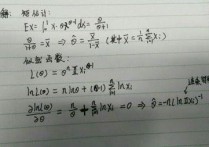 解: 矩估计:
EX = ∫₀¹ x·θx^(θ-1) dx = θ/(θ+1)
θ/(1+θ) = x̄ ⇒ θ̂ = x̄/(1-x̄) (其中 x̄ = 1/n Σ xᵢ)
似然函数:
L(θ) = θⁿ Π xᵢ^(θ-1)
ln L(θ) = n lnθ + (θ-1) Σ ln xᵢ
∂lnL(θ)/∂θ = n/θ + Σ ln xᵢ = 0 ⇒ θ̂ = -n(ln Π xᵢ)⁻¹